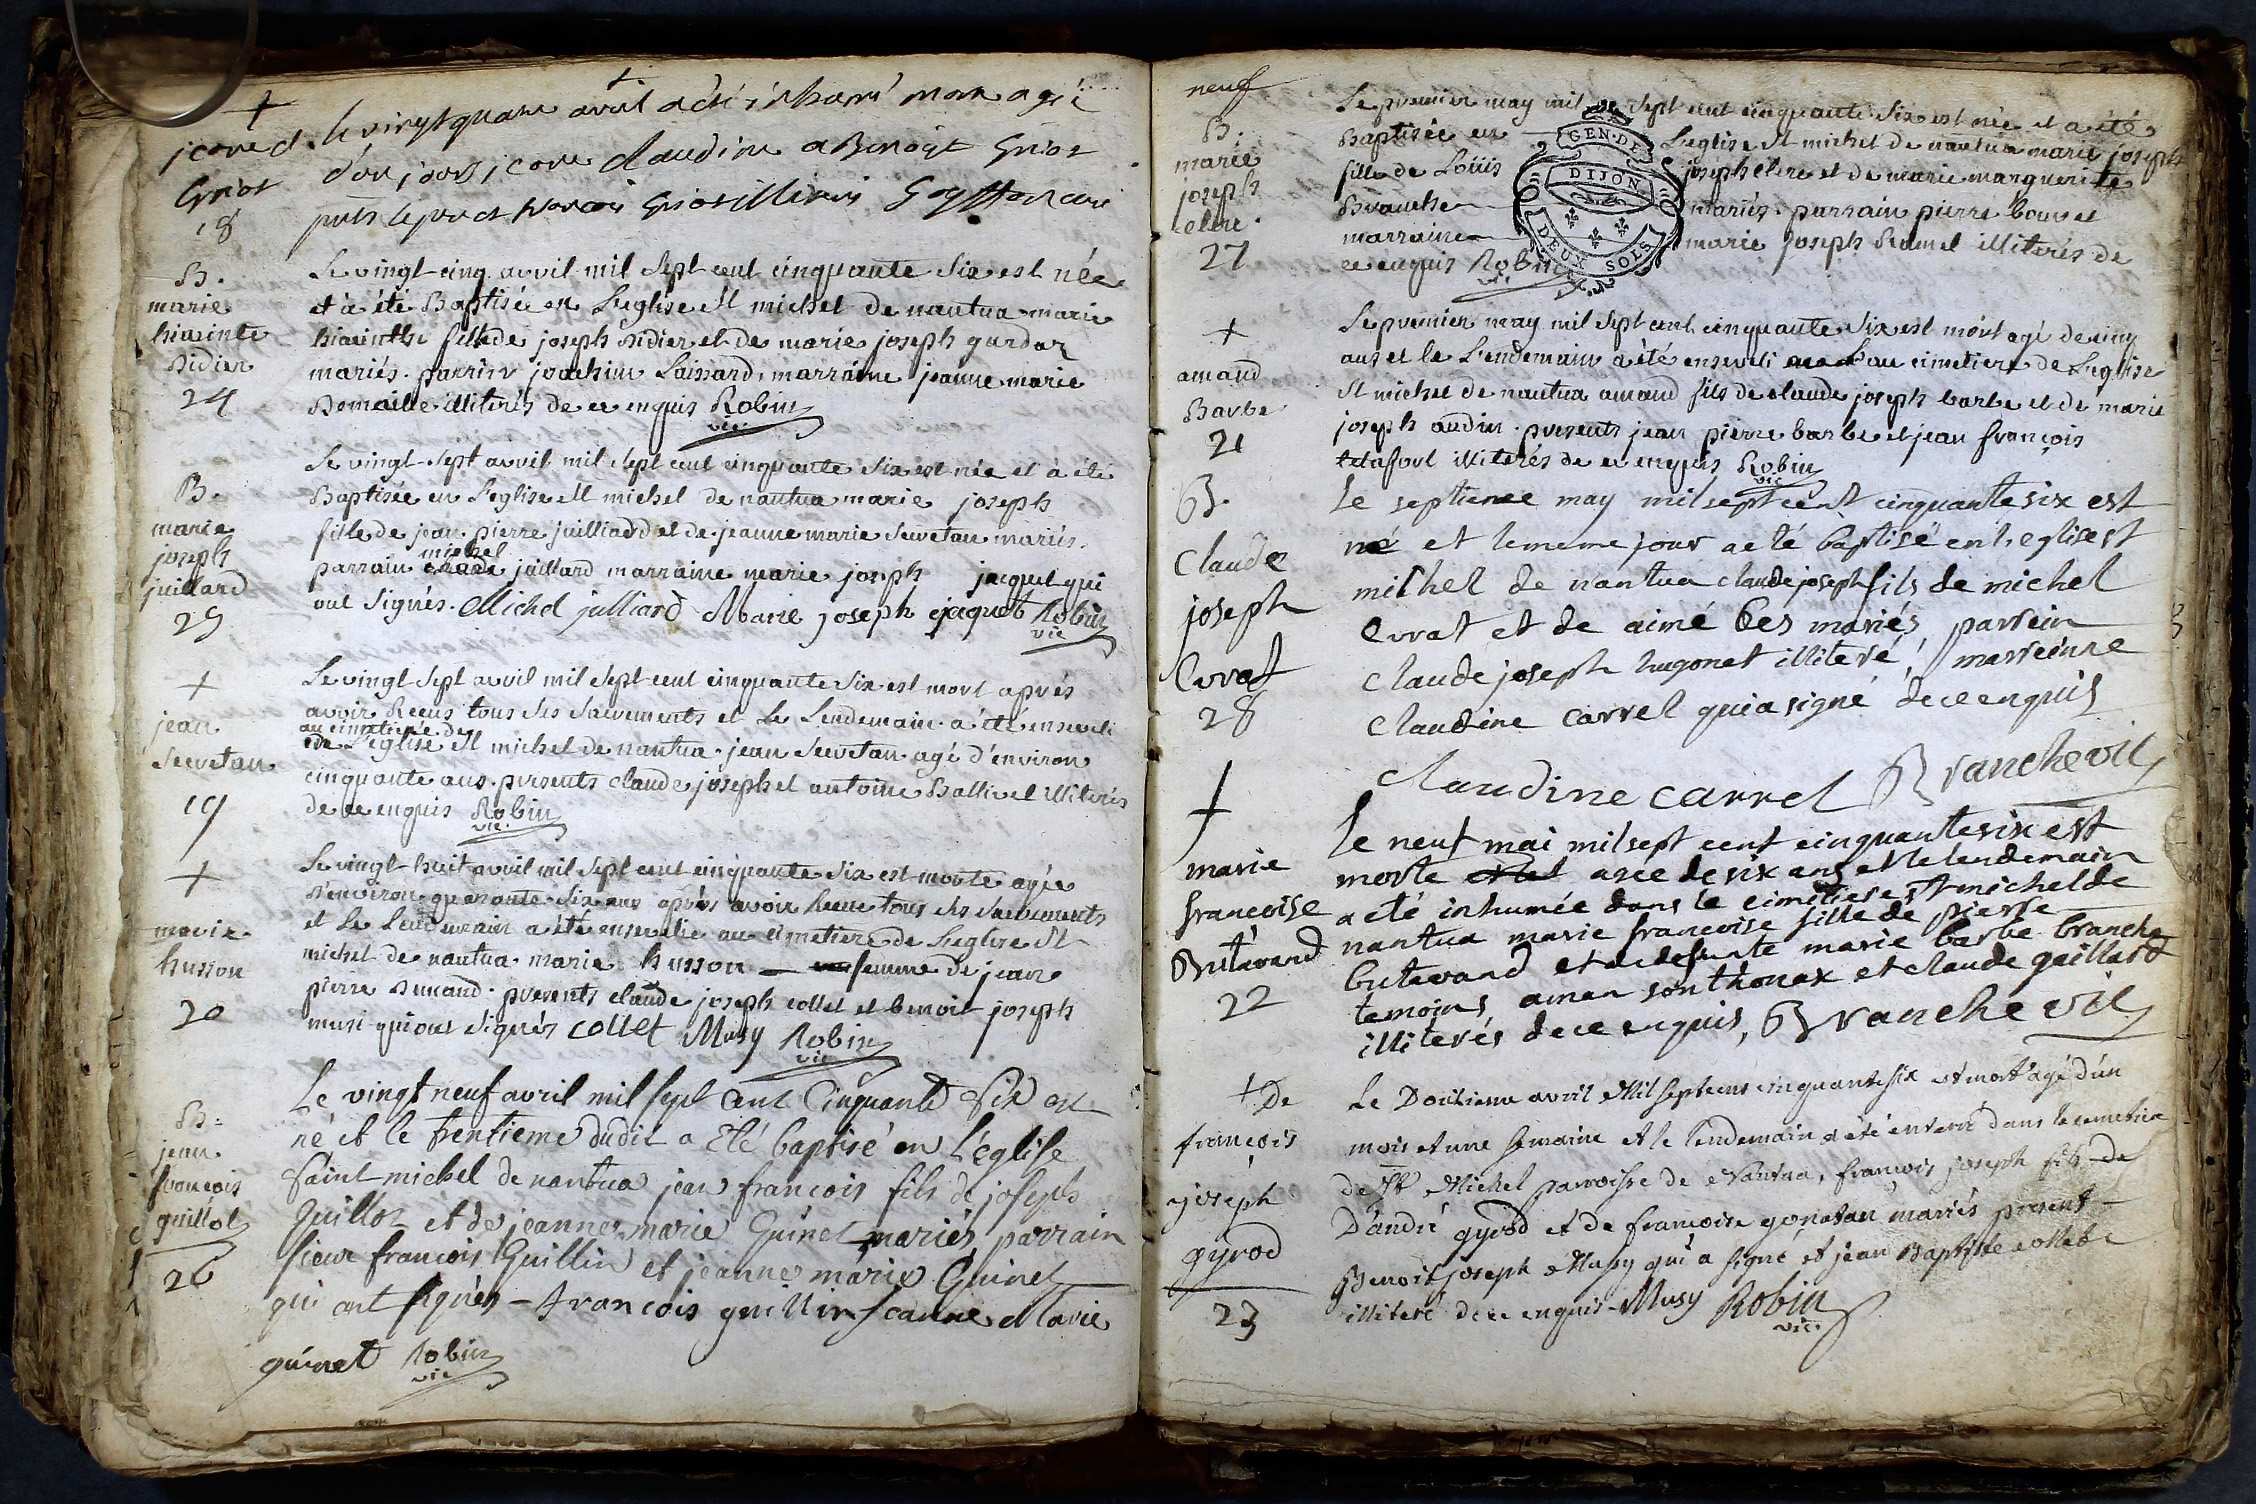 +
jcone d.
Griot
18
le vingt quatre avril a été inhumé mort agé
d'un jour jcone claudine a Benoist Griot
puis le pnt françois Griot illiteris Goyffon curé
B.
marie
hiacinte
didier
24
Le vingt-cinq avril mil sept cent cinquante six est née
et à été Baptisée en L'eglise st michel de nantua marie
hiacinthe fille de joseph didier et de marie joseph gardaz
mariés. parrain joachim Laissard, marraine jeanne marie
Domaille illiterés de ce enquis Robin
vic.
B.
marie
joseph
juillard
25
Le vingt-sept avril mil sept cent cinquante six est née et à été
Baptisée en L'eglise st michel de nantua marie joseph
fille de jean pierre juilliard et de jeanne marie secretan mariés.
michel
parrain claude juillard marraine marie joseph jacquet qui
ont signés. Michel julliard Marie joseph jaquet Robin
vic
+
jean
secretan
19
Le vingt sept avril mil sept cent cinquante six est mort aprés
avoir Receus tous ses sacrements et Le Lendemain a été enseveli
au cimetiere de
L'eglise st michel de nantua. jean secretan agé d'environ
cinquante ans. presents claude joseph et antoine Ballivet illiterés
de ce enquis Robin
vic.
+
marie
husson
20
Le vingt-huit avril mil sept cent cinquante six est morte agée
d'environ quarante six ans aprés avoir Receue tous ses sacrements
et Le Lendemain a été ensevelie au cimetiere de L'eglise st
michel de nantua. marie husson femme de jean
pierre Dunand. presents claude joseph collet et benoit joseph
musi qui ont signés collet Musy Robin
vic
B.
jean
francois
guillot
26
Le vingt neuf avril mil sept cent cinquante six est
né et le trentieme dudit a été baptisé en L'église
Saint michel de nantua jean francois fils de joseph
Guillot et de jeanne marie Guinet mariés parrain
sieur francois Guillin et jeanne marie Guinet
qui ont signés - francois guillin jeanne Marie
guinet Robin
vic
neuf
B.
marie
joseph
clere.
27
Le premier may mil sept cent cinquante six est née et a été
Baptisée en L'eglise st michel de nantua marie joseph
fille de Loüis joseph clere et de marie marguerite
Branche mariés. parrain pierre bouvet
marraine marie joseph Ramel illiterés de
ce enquis Robin
vic
GEN. DE
DIJON
DEUX SOLS
+
amand
Barbe
21
Le premier may mil sept cent cinquante six est mort agé de cinq
ans et le Lendemain a été enseveli au cimetiere de L'eglise
st michel de nantua amand fils de claude joseph barbe et de marie
joseph audin. presents jean pierre barbe et jean françois
tetafort illiterés de ce enquis Robin
vic
B.
Claude
joseph
Evrat
28
le septieme may mil sept cent cinquante six est
né et le meme jour a eté baptisé en l'eglise st
michel de nantua claude joseph fils de michel
Evrat et de aimé Bes mariés, parrein
claude joseph hugonet illiteré, marreinne
claudine carrel qui a signé de ce enquis
Claudine carrel Branche vic
+
marie
francoise
Butavand
22
le neuf mai mil sept cent cinquante six est
morte agée de six ans et le lendemain
a eté inhumée dans le cimitiere st michel de
nantua marie francoise fille de pierre
butavand et de defunte marie barbe branche
temoins, aman sonthonax et claude gaillard
illiterés de ce enquis, Branche vic
+ De
françois
joseph
gyrod
23
Le Douzieme avril Mil sept cens cinquante six est mort agé d'un
mois et une semaine et le lendemain a été enterré dans le cemetiere
de st Michel parroisse de Nantua, francois joseph fils de
D'andré gyrod et de francoise gonetan mariés present
Benoit joseph Musy qui a signé et jean Baptiste collet
illiteré de ce enquis - Musy Robin
vic.